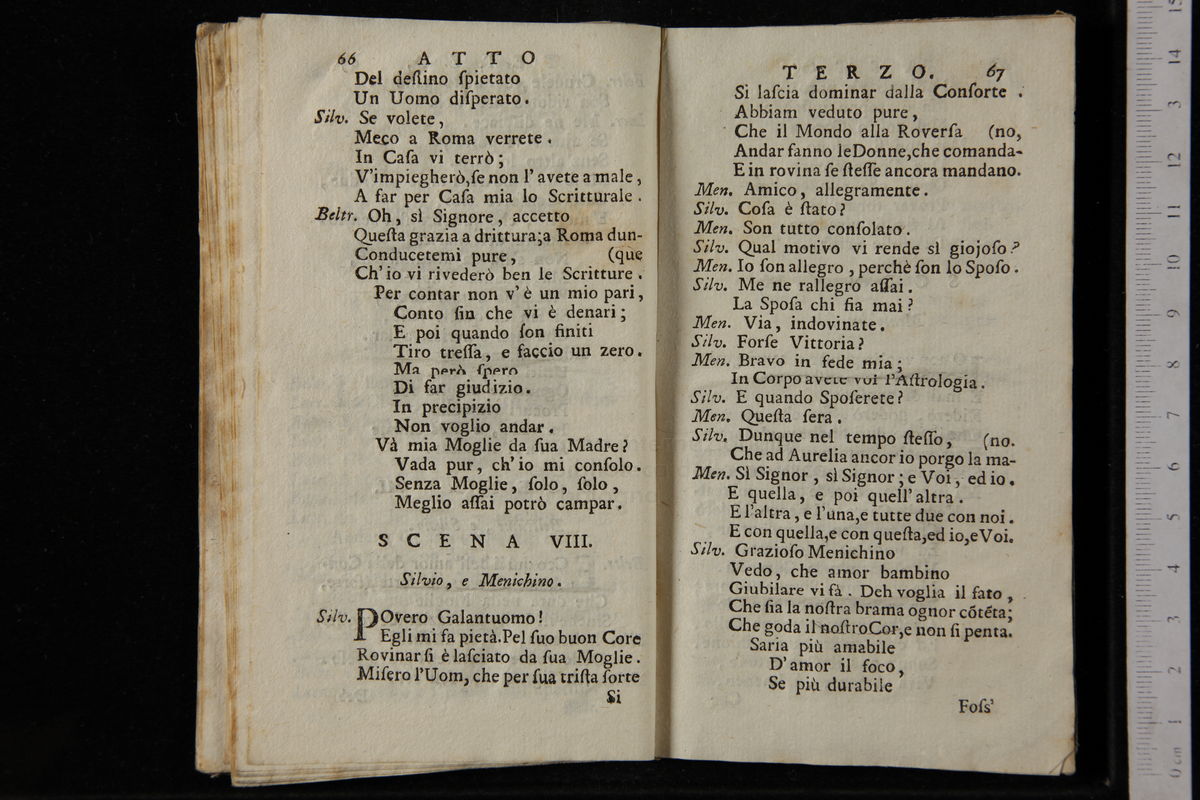 66 ATTO
Del deſtino ſpietato
Un Uomo diſperato.
Silv. Se volete,
Meco a Roma verrete.
In Caſa vi terrò;
V'impiegherò,ſe non l'avete a male,
A far per Caſa mia lo Scritturale.
Beltr. Oh, sì Signore, accetto
Queſta grazia a drittura;a Roma dun-
Conducetemi pure, (que
Ch'io vi rivederò ben le Scritture.
Per contar non v'è un mio pari,
Conto fin che vi è denari;
E poi quando ſon finiti
Tiro treſſa, e faccio un zero.
Ma però ſpero
Di far giudizio.
In precipizio
Non voglio andar.
Và mia Moglie da ſua Madre?
Vada pur, ch'io mi conſolo.
Senza Moglie, ſolo, ſolo,
Meglio aſſai potrò campar.
SCENA VIII.
Silvio, e Menichino.
Silv. POvero Galantuomo!
Egli mi fa pietà.Pel ſuo buon Core
Rovinarſi è laſciato da ſua Moglie.
Miſero l'Uom, che per ſua triſta ſorte
Si
TERZO. 67
Si laſcia dominar dalla Conſorte.
Abbiam veduto pure,
Che il Mondo alla Roverſa (no,
Andar fanno le Donne,che comanda-
E in rovina ſe ſteſſe ancora mandano.
Men. Amico, allegramente.
Silv. Coſa è ſtato?
Men. Son tutto conſolato.
Silv. Qual motivo vi rende sì giojoſo?
Men. Io ſon allegro, perchè ſon lo Spoſo.
Silv. Me ne rallegro aſſai.
La Spoſa chi fia mai?
Men. Via, indovinate.
Silv. Forſe Vittoria?
Men. Bravo in fede mia;
In Corpo avete voi l'Aſtrologia.
Silv. E quando Spoſerete?
Men. Queſta ſera.
Silv. Dunque nel tempo ſteſſo, (no.
Che ad Aurelia ancor io porgo la ma-
Men. Sì Signor, sì Signor; e Voi, ed io.
E quella, e poi quell'altra.
E l'altra, e l'una,e tutte due con noi.
E con quella,e con queſta,ed io,e Voi.
Silv. Grazioſo Menichino
Vedo, che amor bambino
Giubilare vi fà. Deh voglia il fato,
Che ſia la noſtra brama ognor cōtéta;
Che goda il noſtro Cor,e non ſi penta.
Saria più amabile
D'amor il foco,
Se più durabile
Foſs'
0 cm 1 2 3 4 5 6 7 8 9 10 11 12 3 14 15